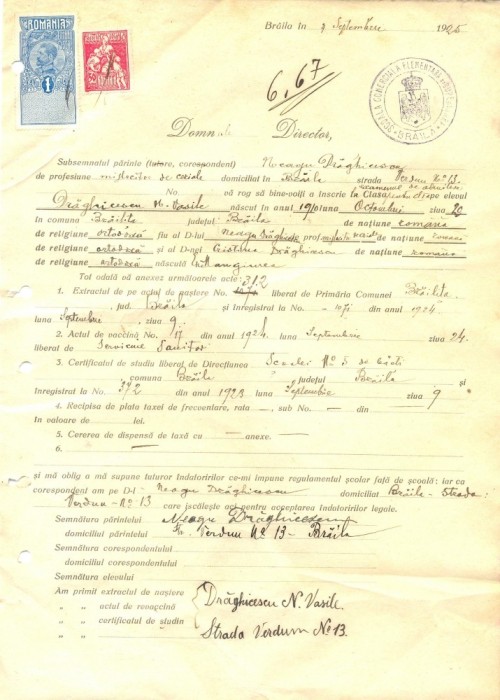 ROMANIA
1
Brăila în 9 Septembre 1925
6,67
ȘCOALA COMERCIALĂ ELEMENTARĂ
BRĂILA
Domnule Director,
Subsemnatul părinte (tutore, corespondent) Neagu Drăghicescu
de profesiune domiciliat în Brăila strada Verdun No 13.
No. vă rog să bine-voiți a înscrie în Clasa elevul
Drăghicescu N. Vasile născut în anul 1910 luna Octombrie ziua 20
în comuna Brăilița județul Brăila de națiune română
de religiune ortodoxă fiu al D-lui Neagu Drăghicescu prof. de națiune română
de religiune ortodoxă și al D-nei Drăghicescu de națiune română
de religiune ortodoxă născută
Tot odată vă anexez următoarele acte:
312
1. Extractul de pe actul de naștere No. liberat de Primăria Comunei Brăilița
jud. Brăila și înregistrat la No. din anul 1924
luna Septembrie ziua 9
2. Actul de vaccină No. 17 din anul 1924 luna Septembrie ziua 24.
liberat de Serviciul Sanitar
3. Certificatul de studiu liberat de Direcțiunea Scoalei No 5 de
comuna Brăila județul Brăila și
înregistrat la No. 372 din anul 1923 luna Septembrie ziua 9
4. Recipisa de plata taxei de frecventare, rata — sub No. — din
în valoare de lei.
5. Cererea de dispensă de taxă cu — anexe. —
6.
și mă oblig a mă supune tuturor îndatoririlor ce-mi impune regulamentul școlar față de școală: iar ca
corespondent am pe D-l - Neagu Drăghicescu domiciliat Brăila - Strada
Verdun - No 13 care iscălește aci pentru acceptarea îndatoririlor legale.
Semnătura părintelui Neagu Draghicescu
domiciliul părintelui Str. Verdun No 13 - Brăila
Semnătura corespondentului
domiciliul corespondentului
Semnătura elevului
Am primit extractul de naștere
„ „ actul de revaccină Drăghicescu N. Vasile.
„ „ certificatul de studiu Strada Verdum No 13.